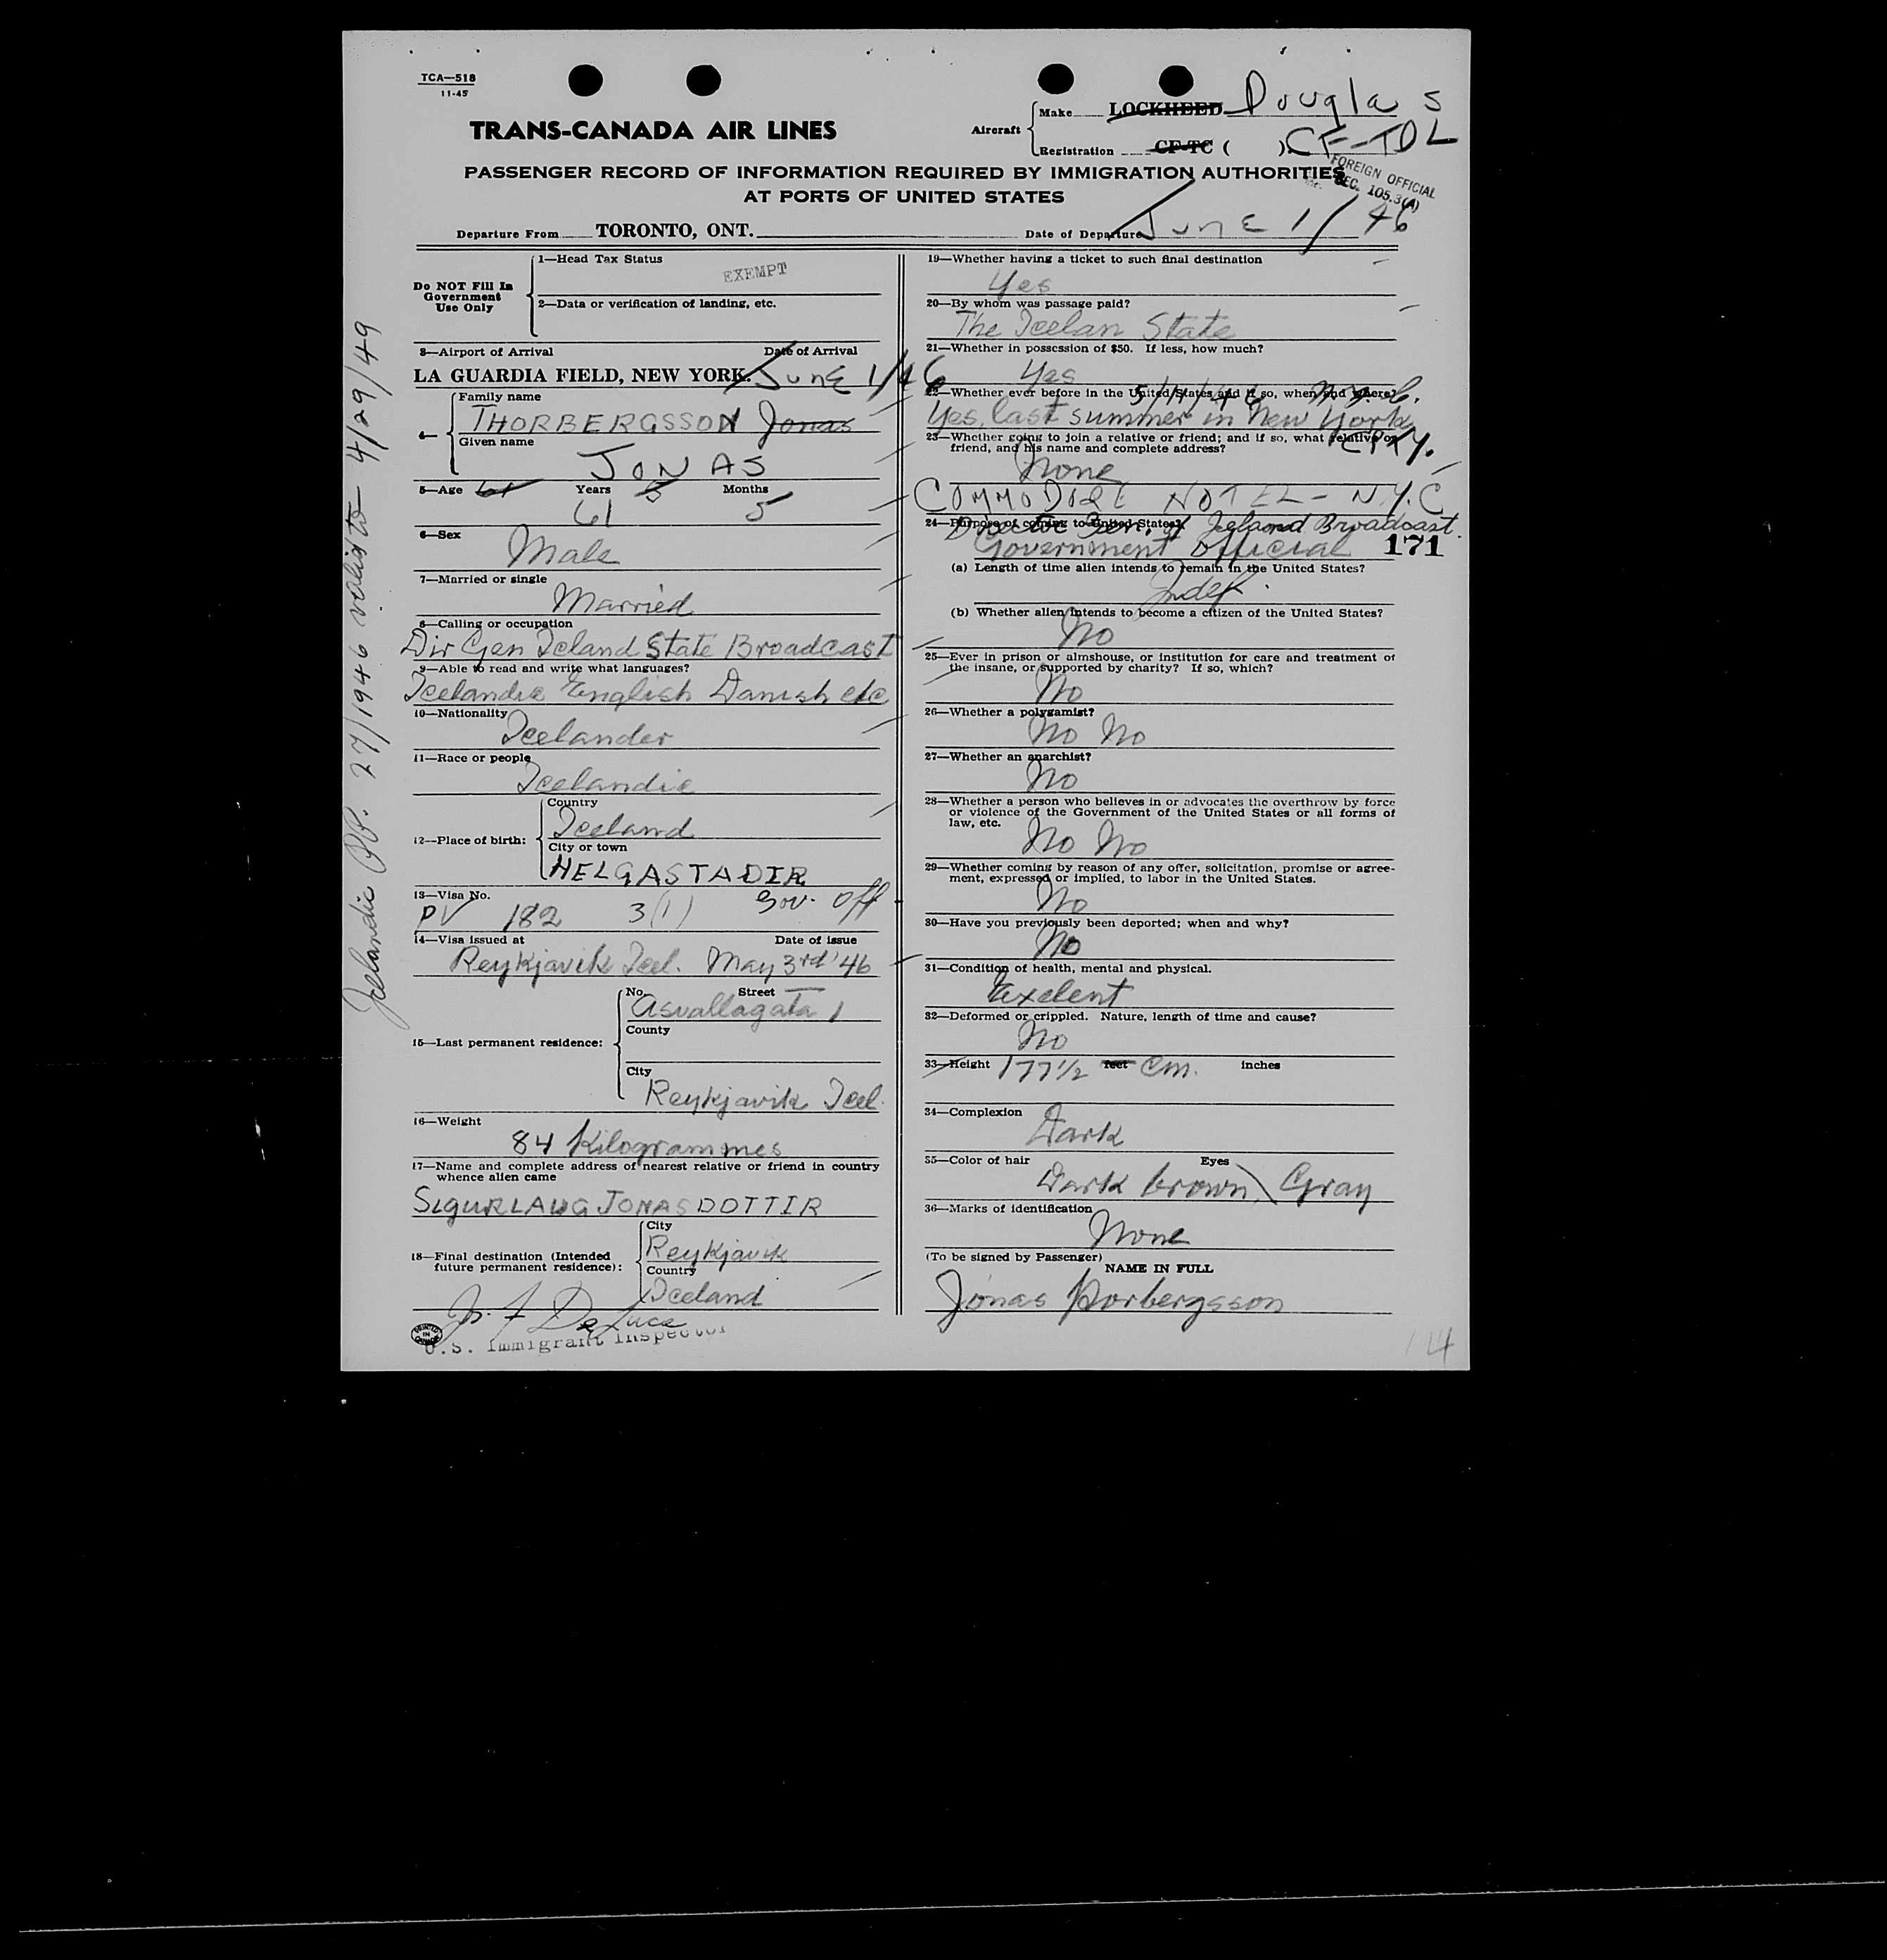 TCA—518
11-45
TRANS-CANADA AIR LINES
Aircraft
Make LOCKHEED Douglas
Registration CF-TC ( ) CF-TDL
PASSENGER RECORD OF INFORMATION REQUIRED BY IMMIGRATION AUTHORITIES
AT PORTS OF UNITED STATES
FOREIGN OFFICIAL
SEC. 105.3(A)
Departure From TORONTO, ONT. Date of Departure June 1/46
Do NOT Fill In
Government
Use Only
1—Head Tax Status
EXEMPT
2—Data or verification of landing, etc.
3—Airport of Arrival Date of Arrival
LA GUARDIA FIELD, NEW YORK. June 1/46
4—
Family name
THORBERGSSON Jonas
Given name
JONAS
5—Age 61 Years 5 Months
61 5
6—Sex
Male
7—Married or single
Married
8—Calling or occupation
Dir Gen Iceland State Broadcast
9—Able to read and write what languages?
Icelandic English Danish etc
10—Nationality
Icelander
11—Race or people
Icelandic
12—Place of birth:
Country
Iceland
City or town
HELGASTADIR
13—Visa No.
PV 182 3(1) Gov. Off
14—Visa issued at Date of issue
Reykjavik Icel. May 3rd '46
15—Last permanent residence:
No. Street
Asvallagata 1
County
City
Reykjavik Icel.
16—Weight
84 Kilogrammes
17—Name and complete address of nearest relative or friend in country
whence alien came
SIGURLAUG JONASDOTTIR
18—Final destination (Intended
future permanent residence):
City
Reykjavik
Country
Iceland
J. F. DeLuca
U.S. Immigrant Inspector
PRINTED
IN
CANADA
Icelandic PP. 27/1946 valid to 4/29/49
19—Whether having a ticket to such final destination
Yes
20—By whom was passage paid?
The Icelan State
21—Whether in possession of $50. If less, how much?
Yes
22—Whether ever before in the United States and if so, when and where?
Yes, last summer in New York
City.
23—Whether going to join a relative or friend; and if so, what relative or
friend, and his name and complete address?
None
COMMODORE HOTEL - N.Y.C
24—Purpose of coming to United States?
Director Gen. of Iceland Broadcast.
Government Official 171
(a) Length of time alien intends to remain in the United States?
Indef.
(b) Whether alien intends to become a citizen of the United States?
No
25—Ever in prison or almshouse, or institution for care and treatment of
the insane, or supported by charity? If so, which?
No
26—Whether a polygamist?
No No
27—Whether an anarchist?
No
28—Whether a person who believes in or advocates the overthrow by force
or violence of the Government of the United States or all forms of
law, etc.
No No
29—Whether coming by reason of any offer, solicitation, promise or agree-
ment, expressed or implied, to labor in the United States.
No
30—Have you previously been deported; when and why?
No
31—Condition of health, mental and physical.
Exelent
32—Deformed or crippled. Nature, length of time and cause?
No
33—Height 177 1/2 feet cm. inches
34—Complexion
Dark
35—Color of hair Eyes
Dark brown Gray
36—Marks of identification
None
(To be signed by Passenger)
NAME IN FULL
Jónas Þorbergsson
14